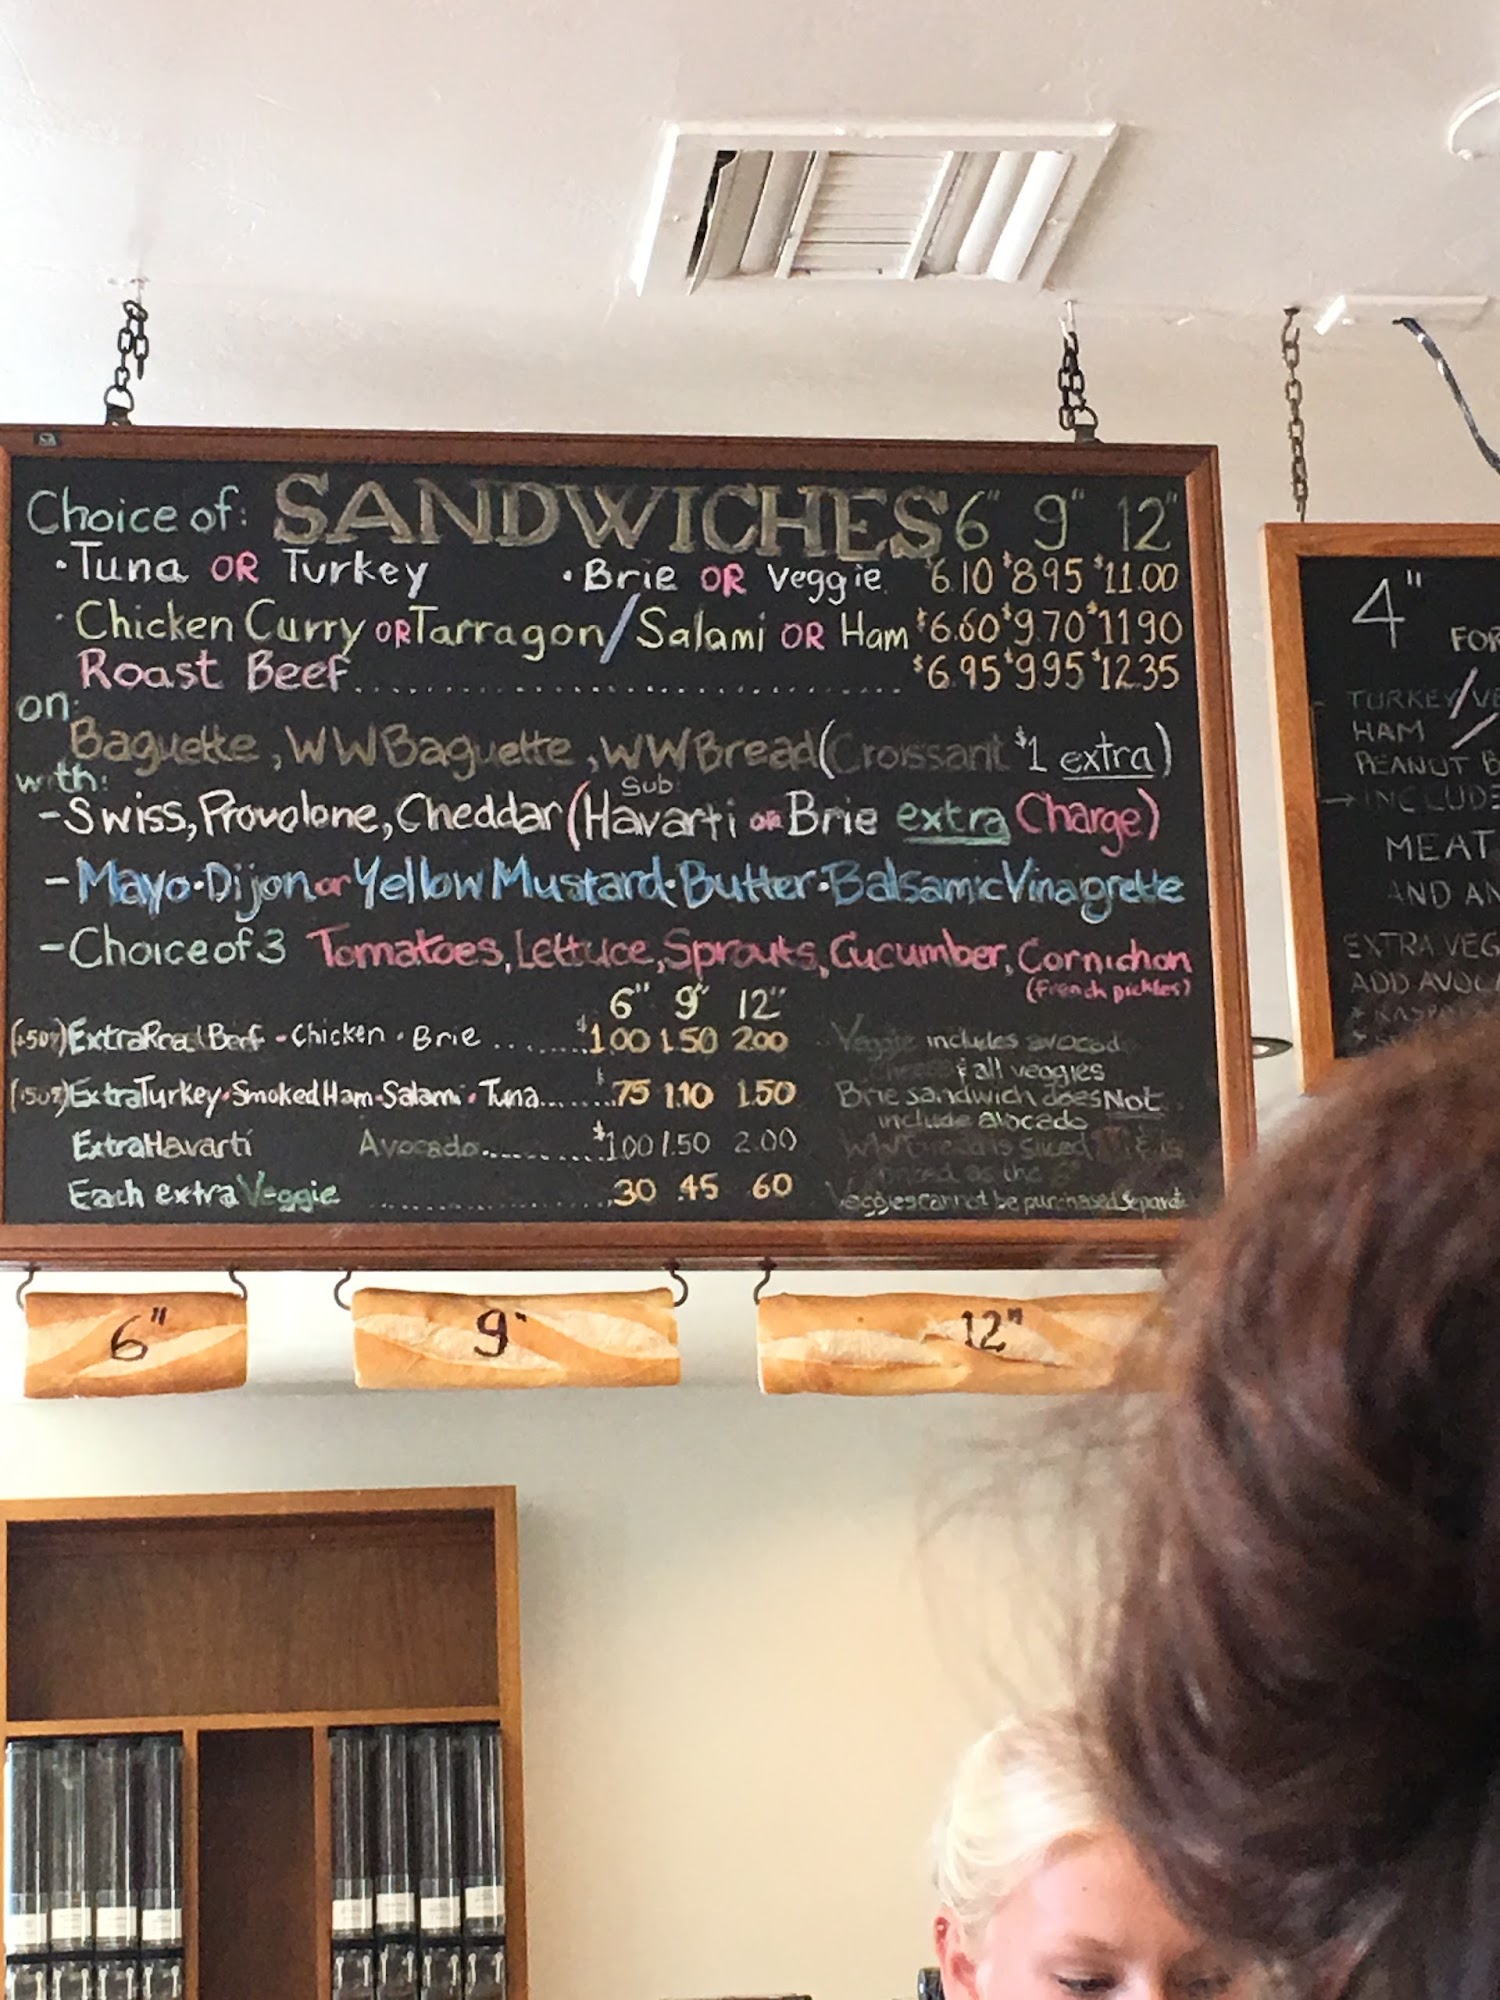 Choice of: SANDWICHES 6" 9" 12"
· Tuna OR Turkey · Brie OR Veggie $6.10 $8.95 $11.00
· Chicken Curry OR Tarragon / Salami OR Ham $6.60 $9.70 $11.90
Roast Beef $6.95 $9.95 $12.35
on:
Baguette, WW Baguette, WW Bread (Croissant $1 extra)
with:
Sub
- Swiss, Provolone, Cheddar (Havarti or Brie extra Charge)
- Mayo · Dijon or Yellow Mustard · Butter · Balsamic Vinaigrette
- Choice of 3 Tomatoes, Lettuce, Sprouts, Cucumber, Cornichon
(french pickles)
6" 9" 12"
Extra Roast Beef - Chicken · Brie ........ $1.00 1.50 2.00
Extra Turkey · Smoked Ham - Salami · Tuna ........ $.75 1.10 1.50
Extra Havarti Avocado ........ $1.00 1.50 2.00
Each extra Veggie ........ .30 .45 .60
Veggie includes avocado
& all veggies
Brie sandwich does NOT
include avocado
WW Bread is sliced
priced as the 6"
Veggies cannot be purchased
6" 9" 12"
4"
FOR
TURKEY/
HAM
PEANUT
→ INCLUDE
MEAT
AND
EXTRA
ADD